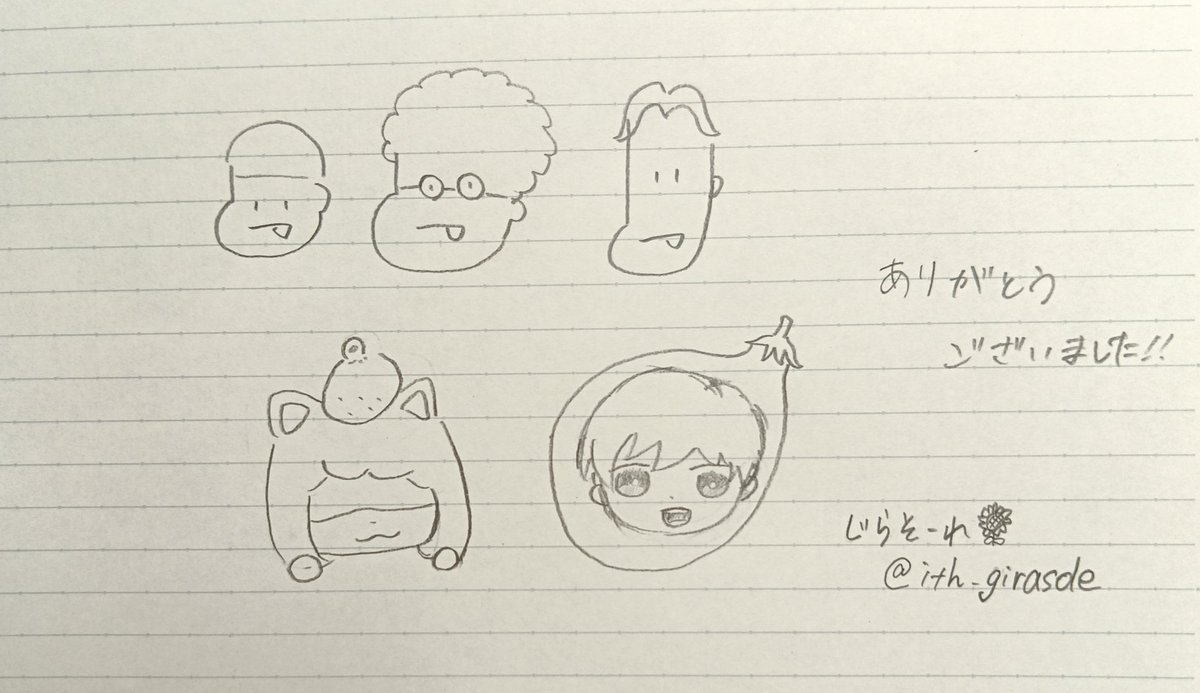 ありがとう
ございました!!
じらそーれ
@ith_girasole